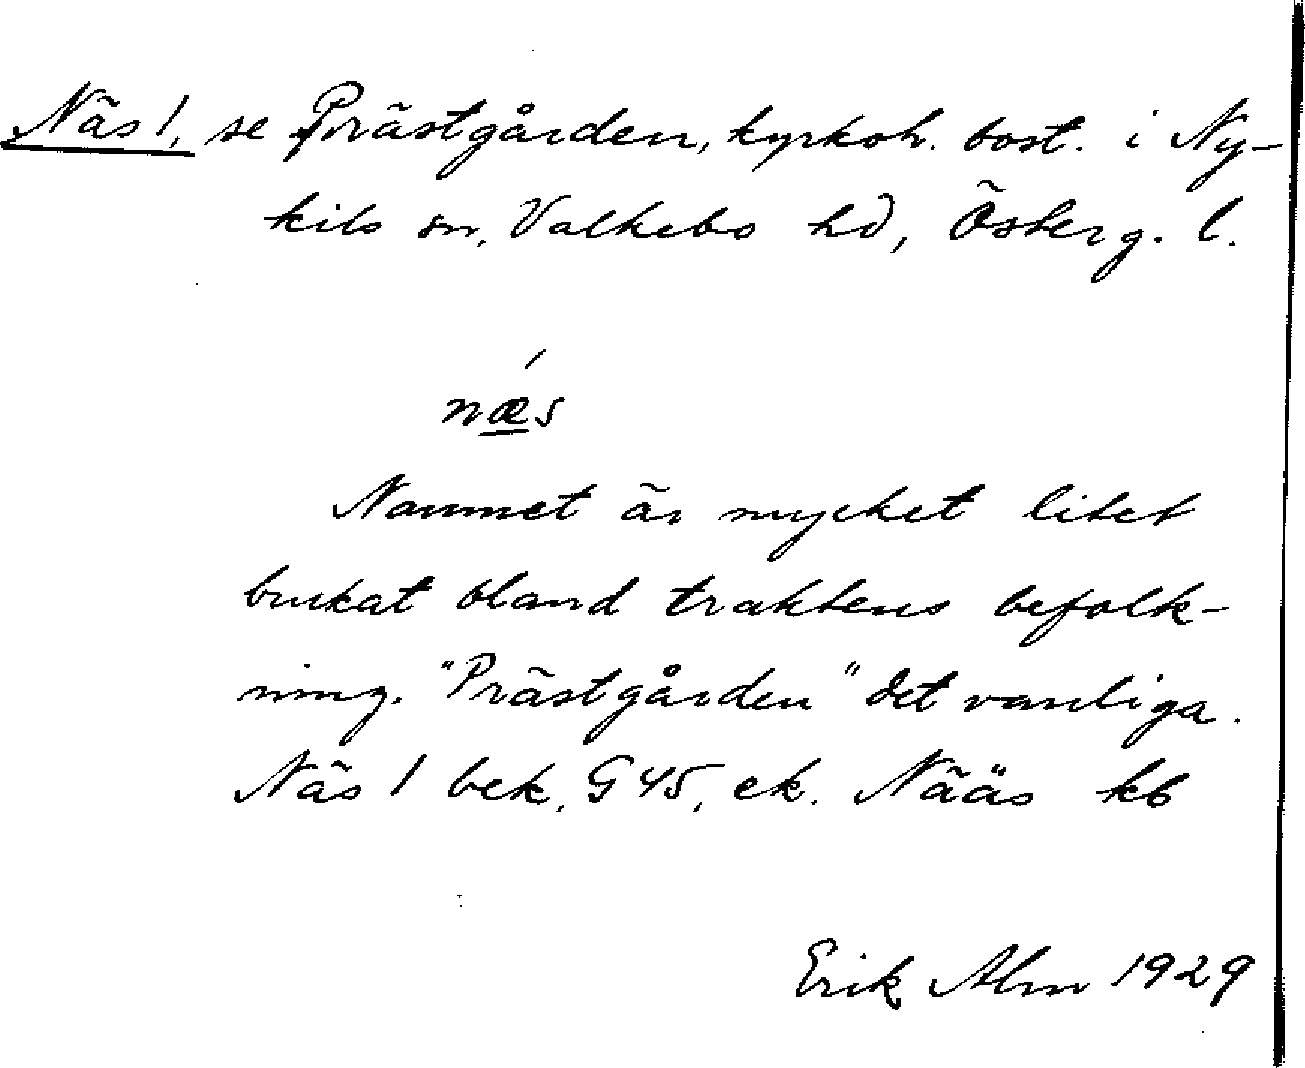 Näs 1, se Prästgården, kyrkoh. bost. i Ny-
kils sn, Valkebo hd, Österg. l.
nǽ̲s
Namnet är mycket litet
brukat bland traktens befolk-
ning. "Prästgården" det vanliga.
Näs 1 bek, G45, ek. Nääs kb
Erik Alm 1929